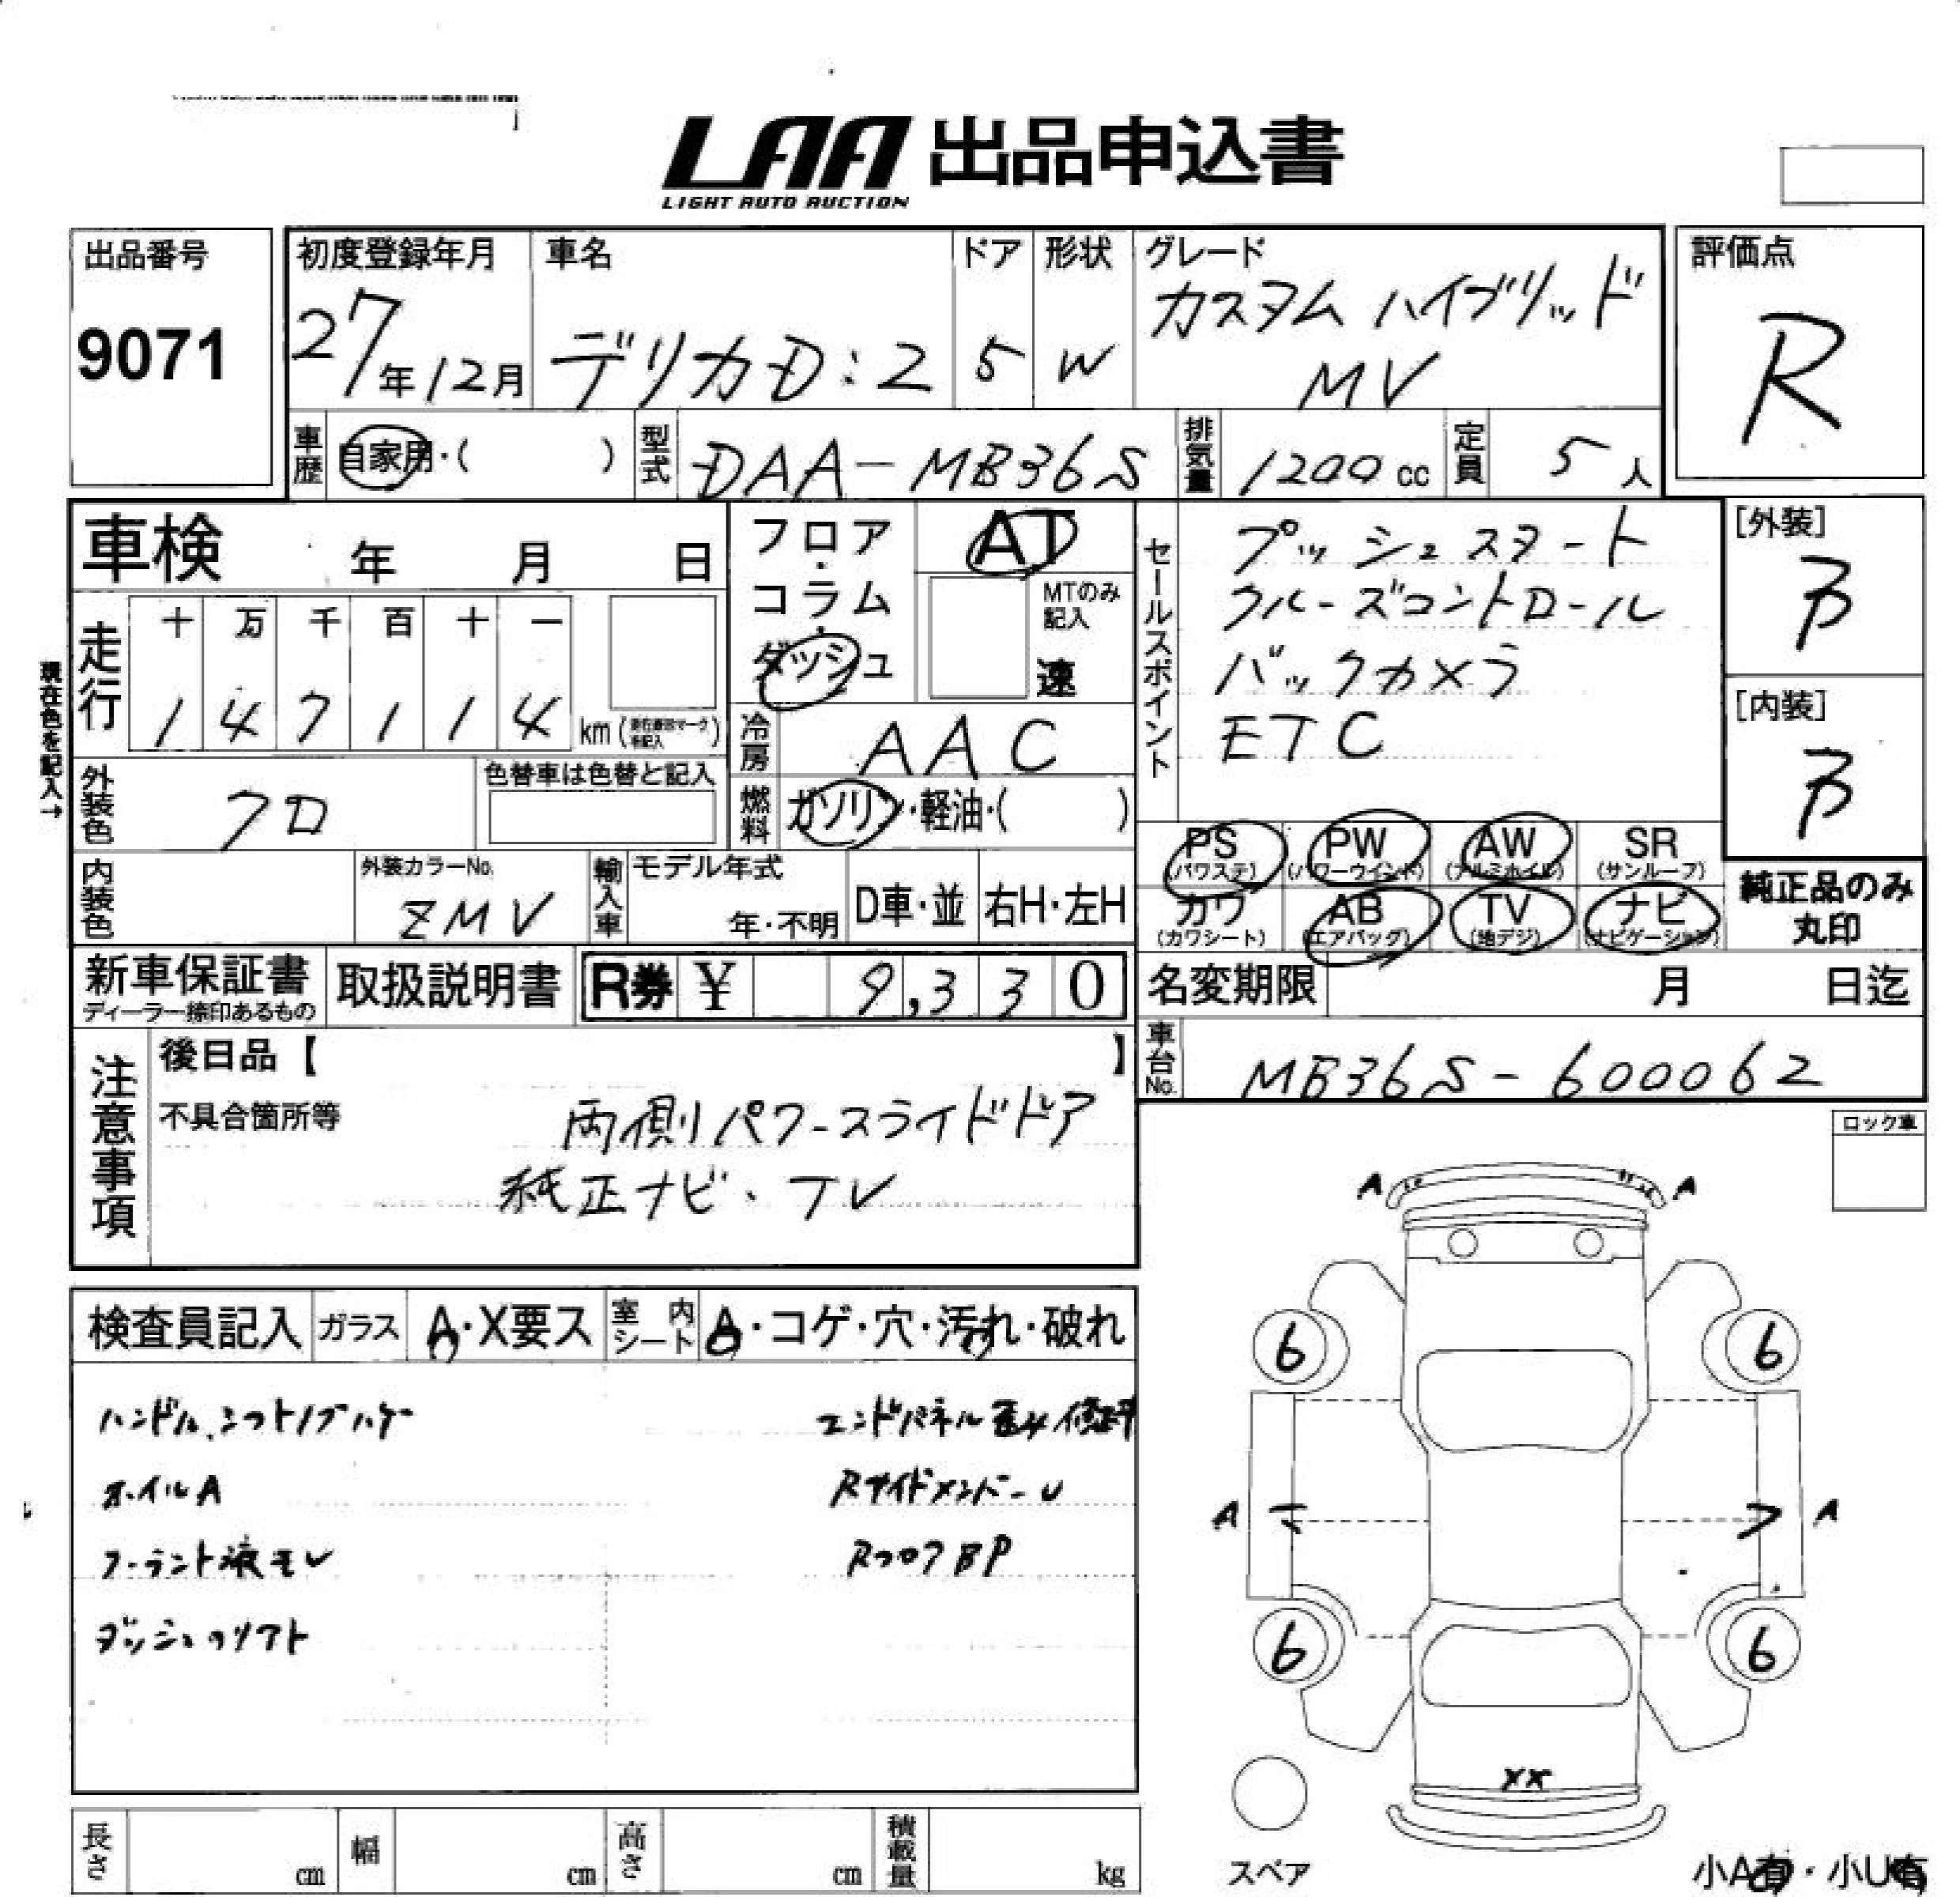 LAA 出品申込書
LIGHT AUTO AUCTION
出品番号
9071
初度登録年月
27年12月
車名
デリカD:2
ドア
5
形状
W
グレード
カスタム ハイブリッド
MV
評価点
R
車歴 自家用・( )
型式 DAA-MB36S
排気量 1200cc
定員 5人
車検 年 月 日
走行 十 万 千 百 十 一
1 4 7 1 1 4 km
現在色を記入→
フロア・コラム・ダッシュ
AT
MTのみ記入
速
冷房 AAC
燃料 ガソリン・軽油・( )
セールスポイント
プッシュスタート
クルーズコントロール
バックカメラ
ETC
[外装]
B
[内装]
B
外装色 クロ
色替車は色替と記入
内装色
外装カラーNo.
ZMV
輸入車 モデル年式
年・不明
D車・並 右H・左H
PS (パワステ) PW (パワーウインド) AW (アルミホイル) SR (サンルーフ)
カワ (カワシート) AB (エアバッグ) TV (地デジ) ナビ (ナビゲーション)
純正品のみ
丸印
新車保証書
ディーラー捺印あるもの
取扱説明書
R券 ¥ 9,330
名変期限 月 日迄
車台No. MB36S-600062
注意事項
後日品【 】
不具合箇所等
両側パワースライドドア
純正ナビ、TV
ロック車
検査員記入 ガラス A・X要ス 室内シート A・コゲ・穴・汚れ・破れ
ハンドル、シフトノブハゲ
ホイルA
クーラント液モレ
ダッシュクリア
エンドパネル歪み修正
RサイドメンバーU
RフロアBP
A A
6 6
A A
6 6
XX
スペア
小A有・小U有
長さ cm 幅 cm 高さ cm 積載量 kg